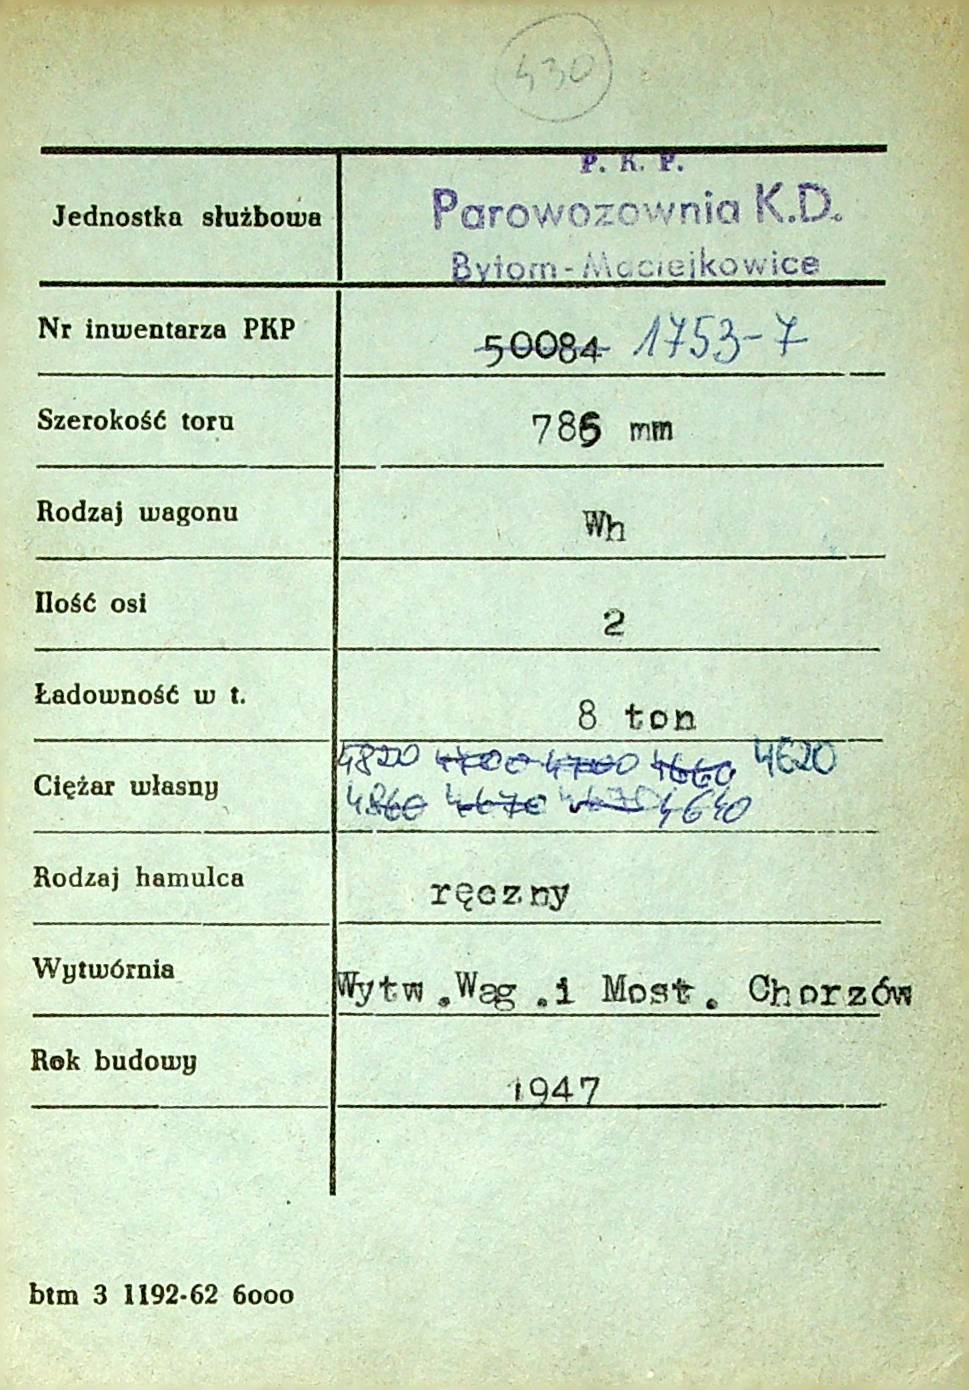 430
P. K. P.
Jednostka służbowa Parowozownia K.D.
Bytom-Maciejkowice
Nr inwentarza PKP 50084 1753-7
Szerokość toru 785 mm
Rodzaj wagonu Wh
Ilość osi 2
Ładowność w t. 8 ton
4820 4700 4700 4660 4620
Ciężar własny 4860 4670 4640
Rodzaj hamulca ręczny
Wytwórnia Wytw.Wag.i Most. Chorzów
Rok budowy 1947
btm 3 1192-62 6000